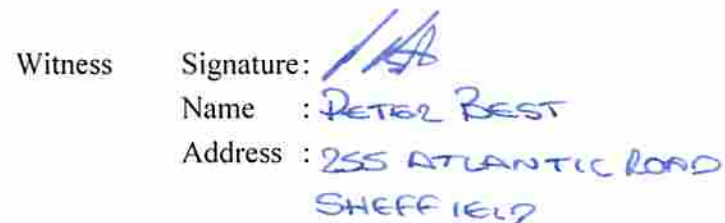 Witness Signature:
Name : PETER BEST
Address : 255 ATLANTIC ROAD
SHEFFIELD